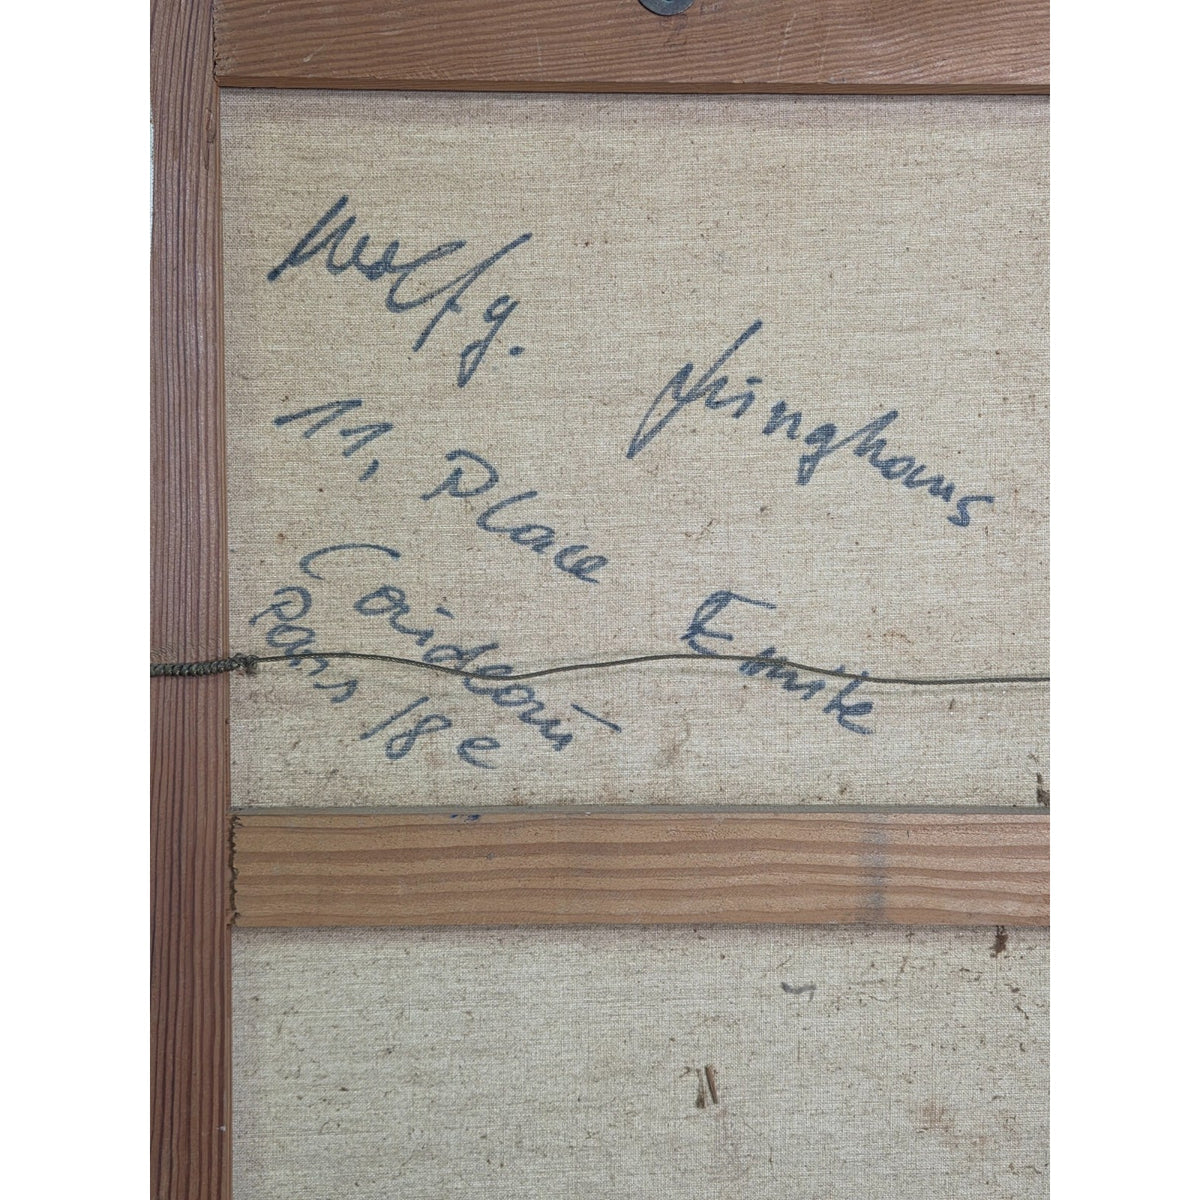 Wolfg. Junghans
11, Place Emile
Goudeau
Paris 18e